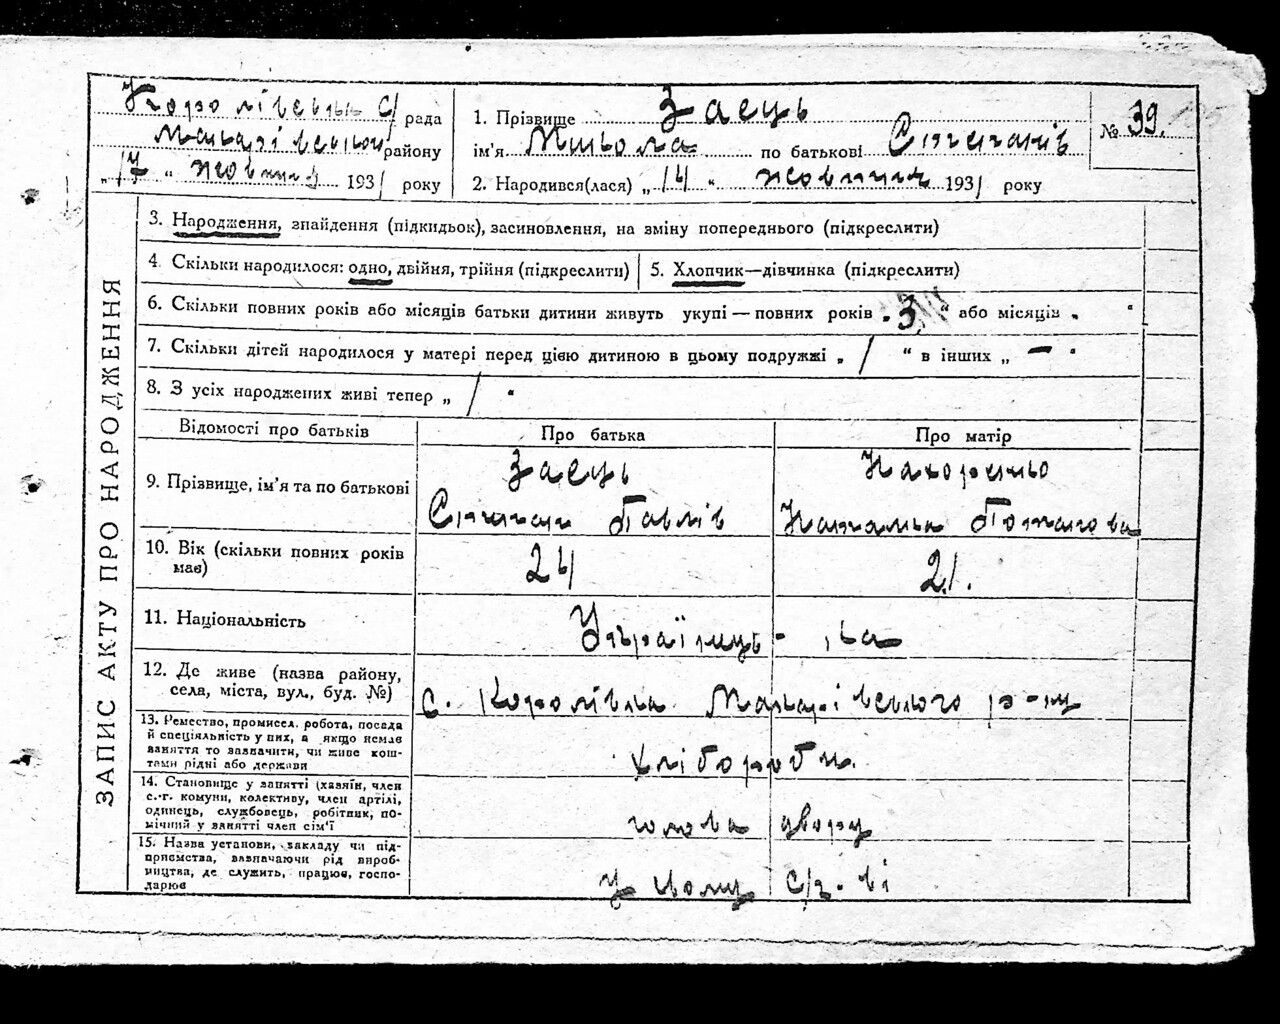 Королівська С/рада
Макарівський району
„17" жовтня 1931 року
1. Прізвище Заєць
ім'я Микола по батькові Степанів
2. Народився(лася) „14" жовтня 1931 року
№ 39.
ЗАПИС АКТУ ПРО НАРОДЖЕННЯ
3. Народження, знайдення (підкидьок), засиновлення, на зміну попереднього (підкреслити)
4. Скільки народилося: одно, двійня, трійня (підкреслити) 5. Хлопчик—дівчинка (підкреслити)
6. Скільки повних років або місяців батьки дитини живуть укупі — повних років „3" або місяців „ "
7. Скільки дітей народилося у матері перед цією дитиною в цьому подружжі „ / " в інших „ — "
8. З усіх народжених живі тепер „ / "
Відомості про батьків Про батька Про матір
9. Прізвище, ім'я та по батькові
Заєць
Степан Павлів
Наталка
10. Вік (скільки повних років має)
24 21.
11. Національність
Українець - ка
12. Де живе (назва району,
села, міста, вул., буд. №)
с. Королівка Макарівського р-ну
13. Ремество, промисел, робота, посада
й спеціяльність у них, а якщо немає
заняття то зазначити, чи живе кош-
тами рідні або держави
Хлібороби.
14. Становище у занятті (хазяїн, член
с.-г. комуни, колективу, член артілі,
одинець, службовець, робітник, по-
мічний у занятті член сім'ї
голова двору
15. Назва установи, закладу чи під-
приємства, зазначаючи рід вироб-
ництва, де служить, працює, госпо-
дарює
у свому С/г-ві